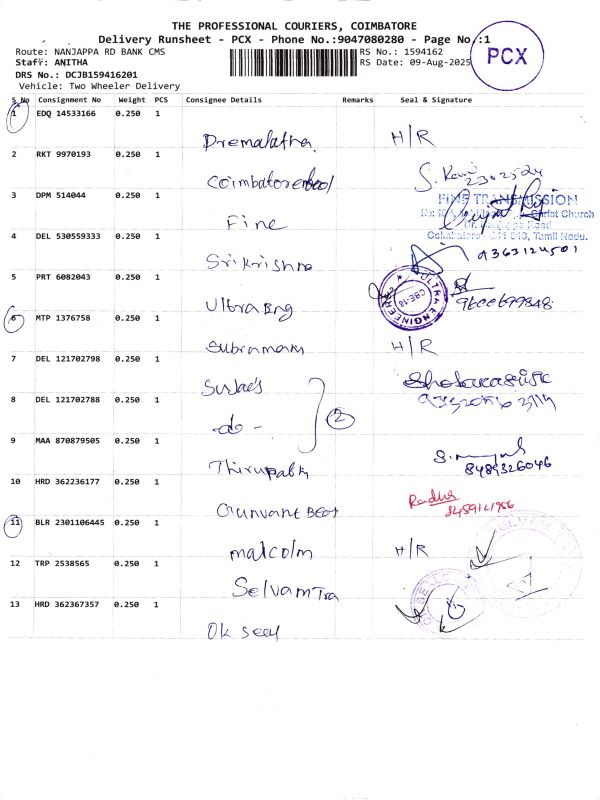 THE PROFESSIONAL COURIERS, COIMBATORE
Delivery Runsheet - PCX - Phone No.:9047080280 - Page No.:1
Route: NANJAPPA RD BANK CMS
RS No.: 1594162
Staff: ANITHA
RS Date: 09-Aug-2025
PCX
DRS No.: DCJB159416201
Vehicle: Two Wheeler Delivery
S.No Consignment No Weight PCS Consignee Details Remarks Seal & Signature
1 EDQ 14533166 0.250 1
Premalatha H/R
2 RKT 9970193 0.250 1
Coimbatore
3 DPM 514044 0.250 1
FINE TRANSMISSION
Christ Church
Fine
Road
4 DEL 530559333 0.250 1
Coimbatore - 641 018, Tamil Nadu.
Srikrishna 9363124501
5 PRT 6082043 0.250 1
ULTRA ENGINEERS CBE-18
Ultra Eng 9600699848
6 MTP 1376758 0.250 1
Subramani H/R
7 DEL 121702798 0.250 1
8 DEL 121702788 0.250 1
-do- 2
9 MAA 870879505 0.250 1
Thirupathi 8489326046
10 HRD 362236177 0.250 1
Radha
Gunvant
11 BLR 2301106445 0.250 1
malcolm H/R
12 TRP 2538565 0.250 1
Selvam Tra
13 HRD 362367357 0.250 1
Ok Seey